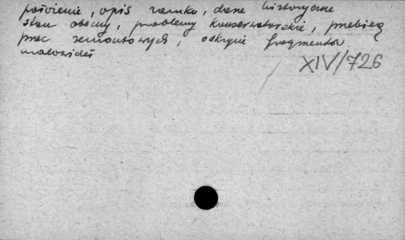 położenie, opis zamku, dane historyczne
stan obecny, problemy konserwatorskie, przebieg
prac remontowych, odkrycie fragmentów
malowideł
XIV/726